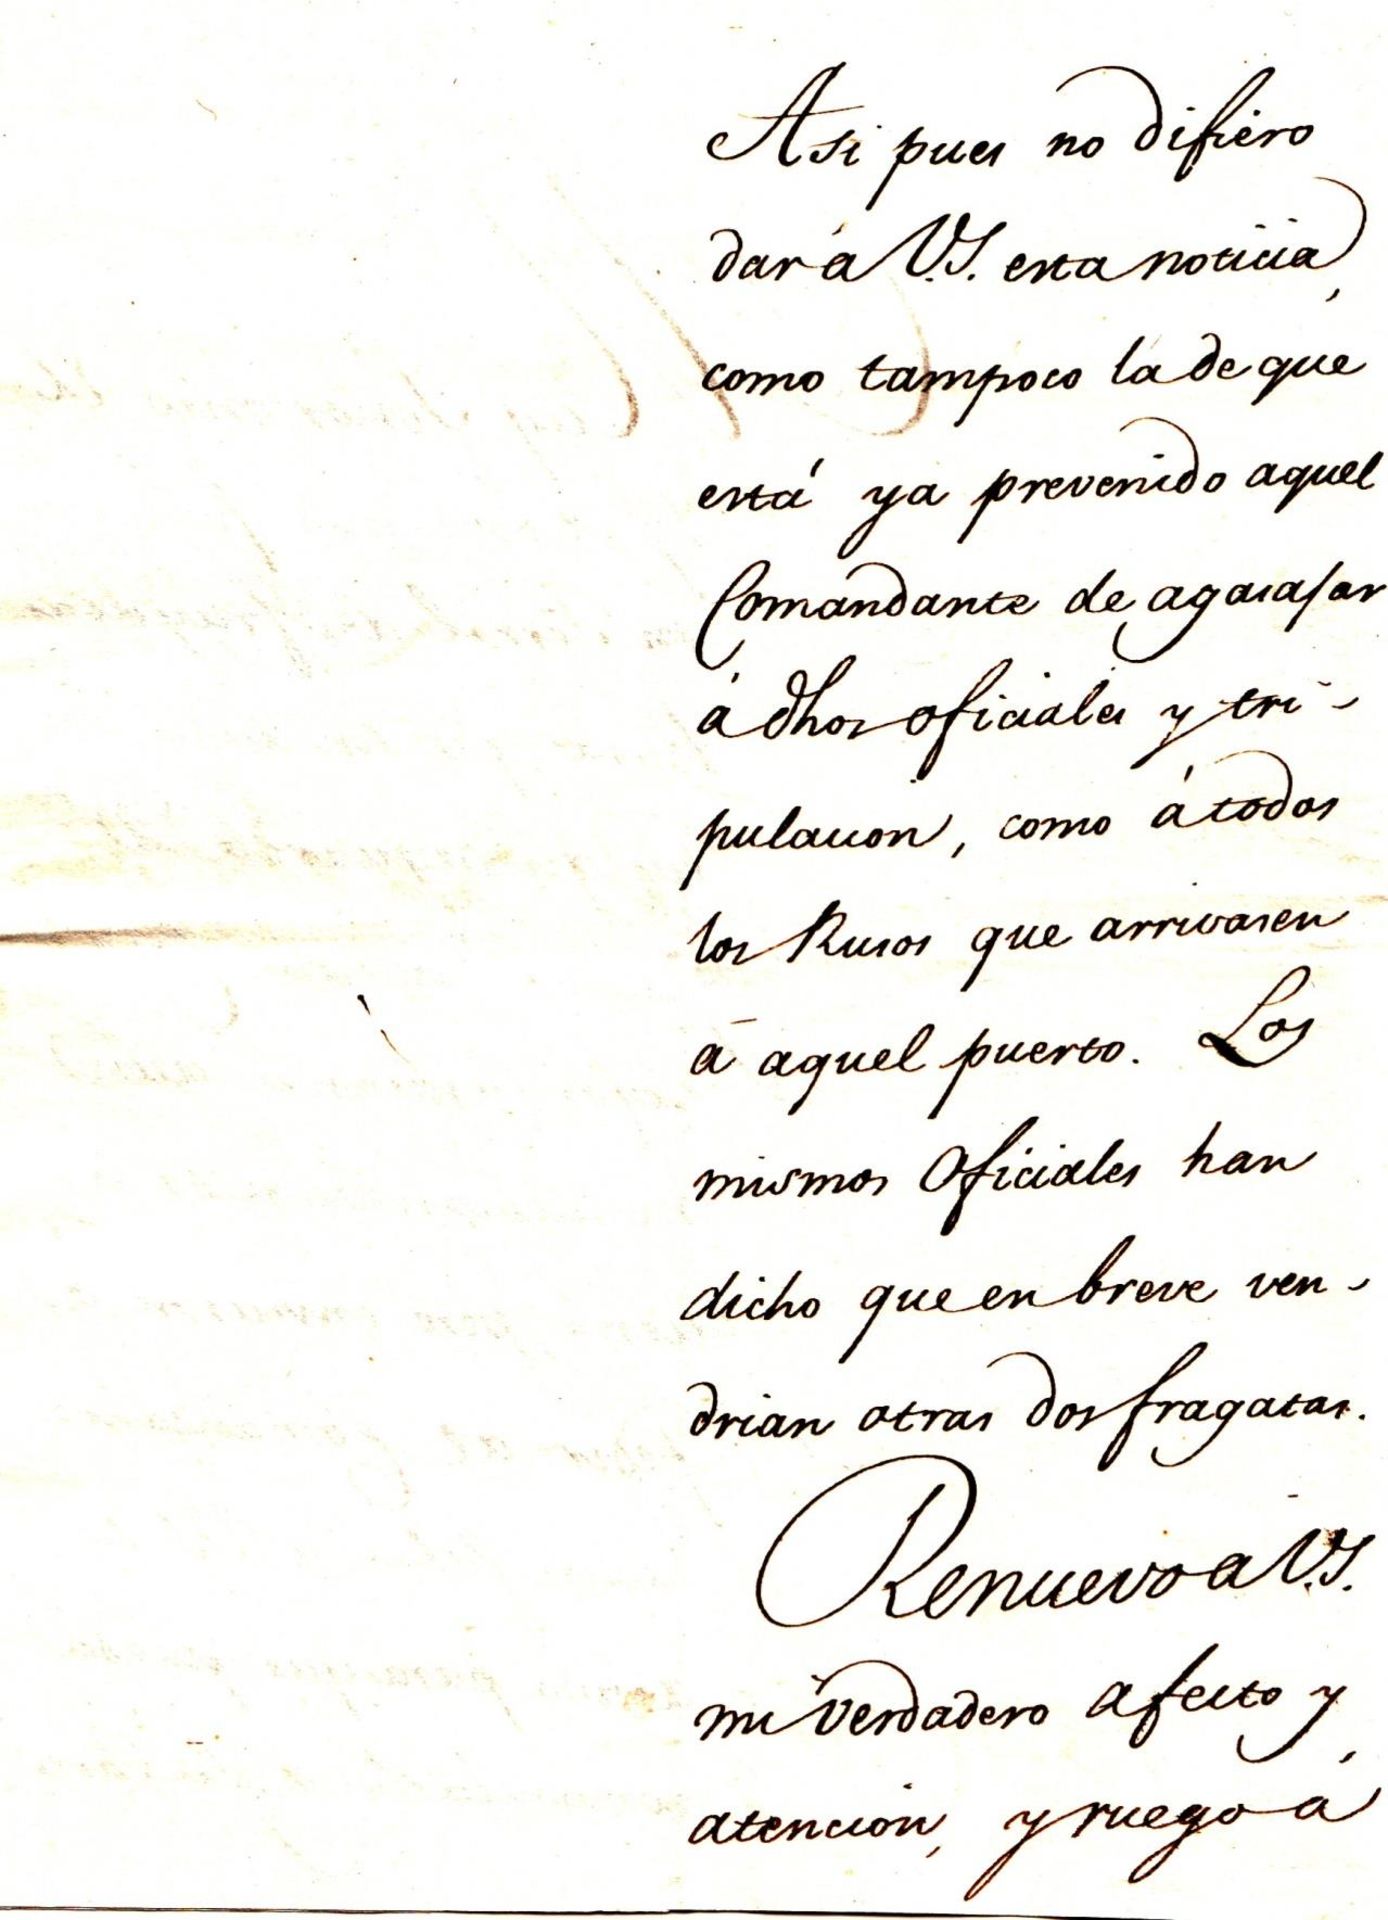 Asi pues no difiero
dar á V.S. esta noticia,
como tampoco la de que
está ya prevenido aquel
Comandante de agasajar
á dhos oficiales y tri-
pulacion, como á todos
los Rusos que arrivasen
á aquel puerto. Los
mismos Oficiales han
dicho que en breve ven-
drian otras dos fragatas.
Renuevo a V.S.
mi verdadero afecto y
atencion, y ruego á